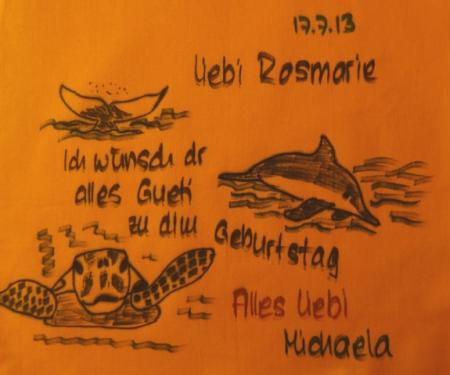 17.7.13
Liebi Rosmarie
Ich wünsch dr
alles Gueti
zu dim
Geburtstag
Alles Liebi
Michaela